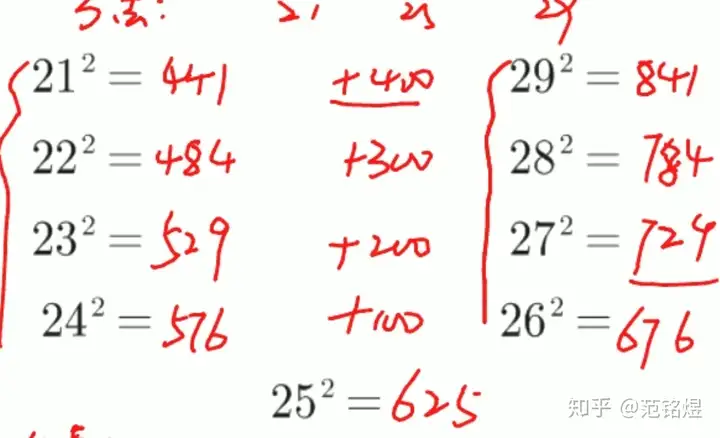 方法: 21 25 29
21² = 441 +400 29² = 841
22² = 484 +300 28² = 784
23² = 529 +200 27² = 729
24² = 576 +100 26² = 676
25² = 625
知乎 @范铭煜